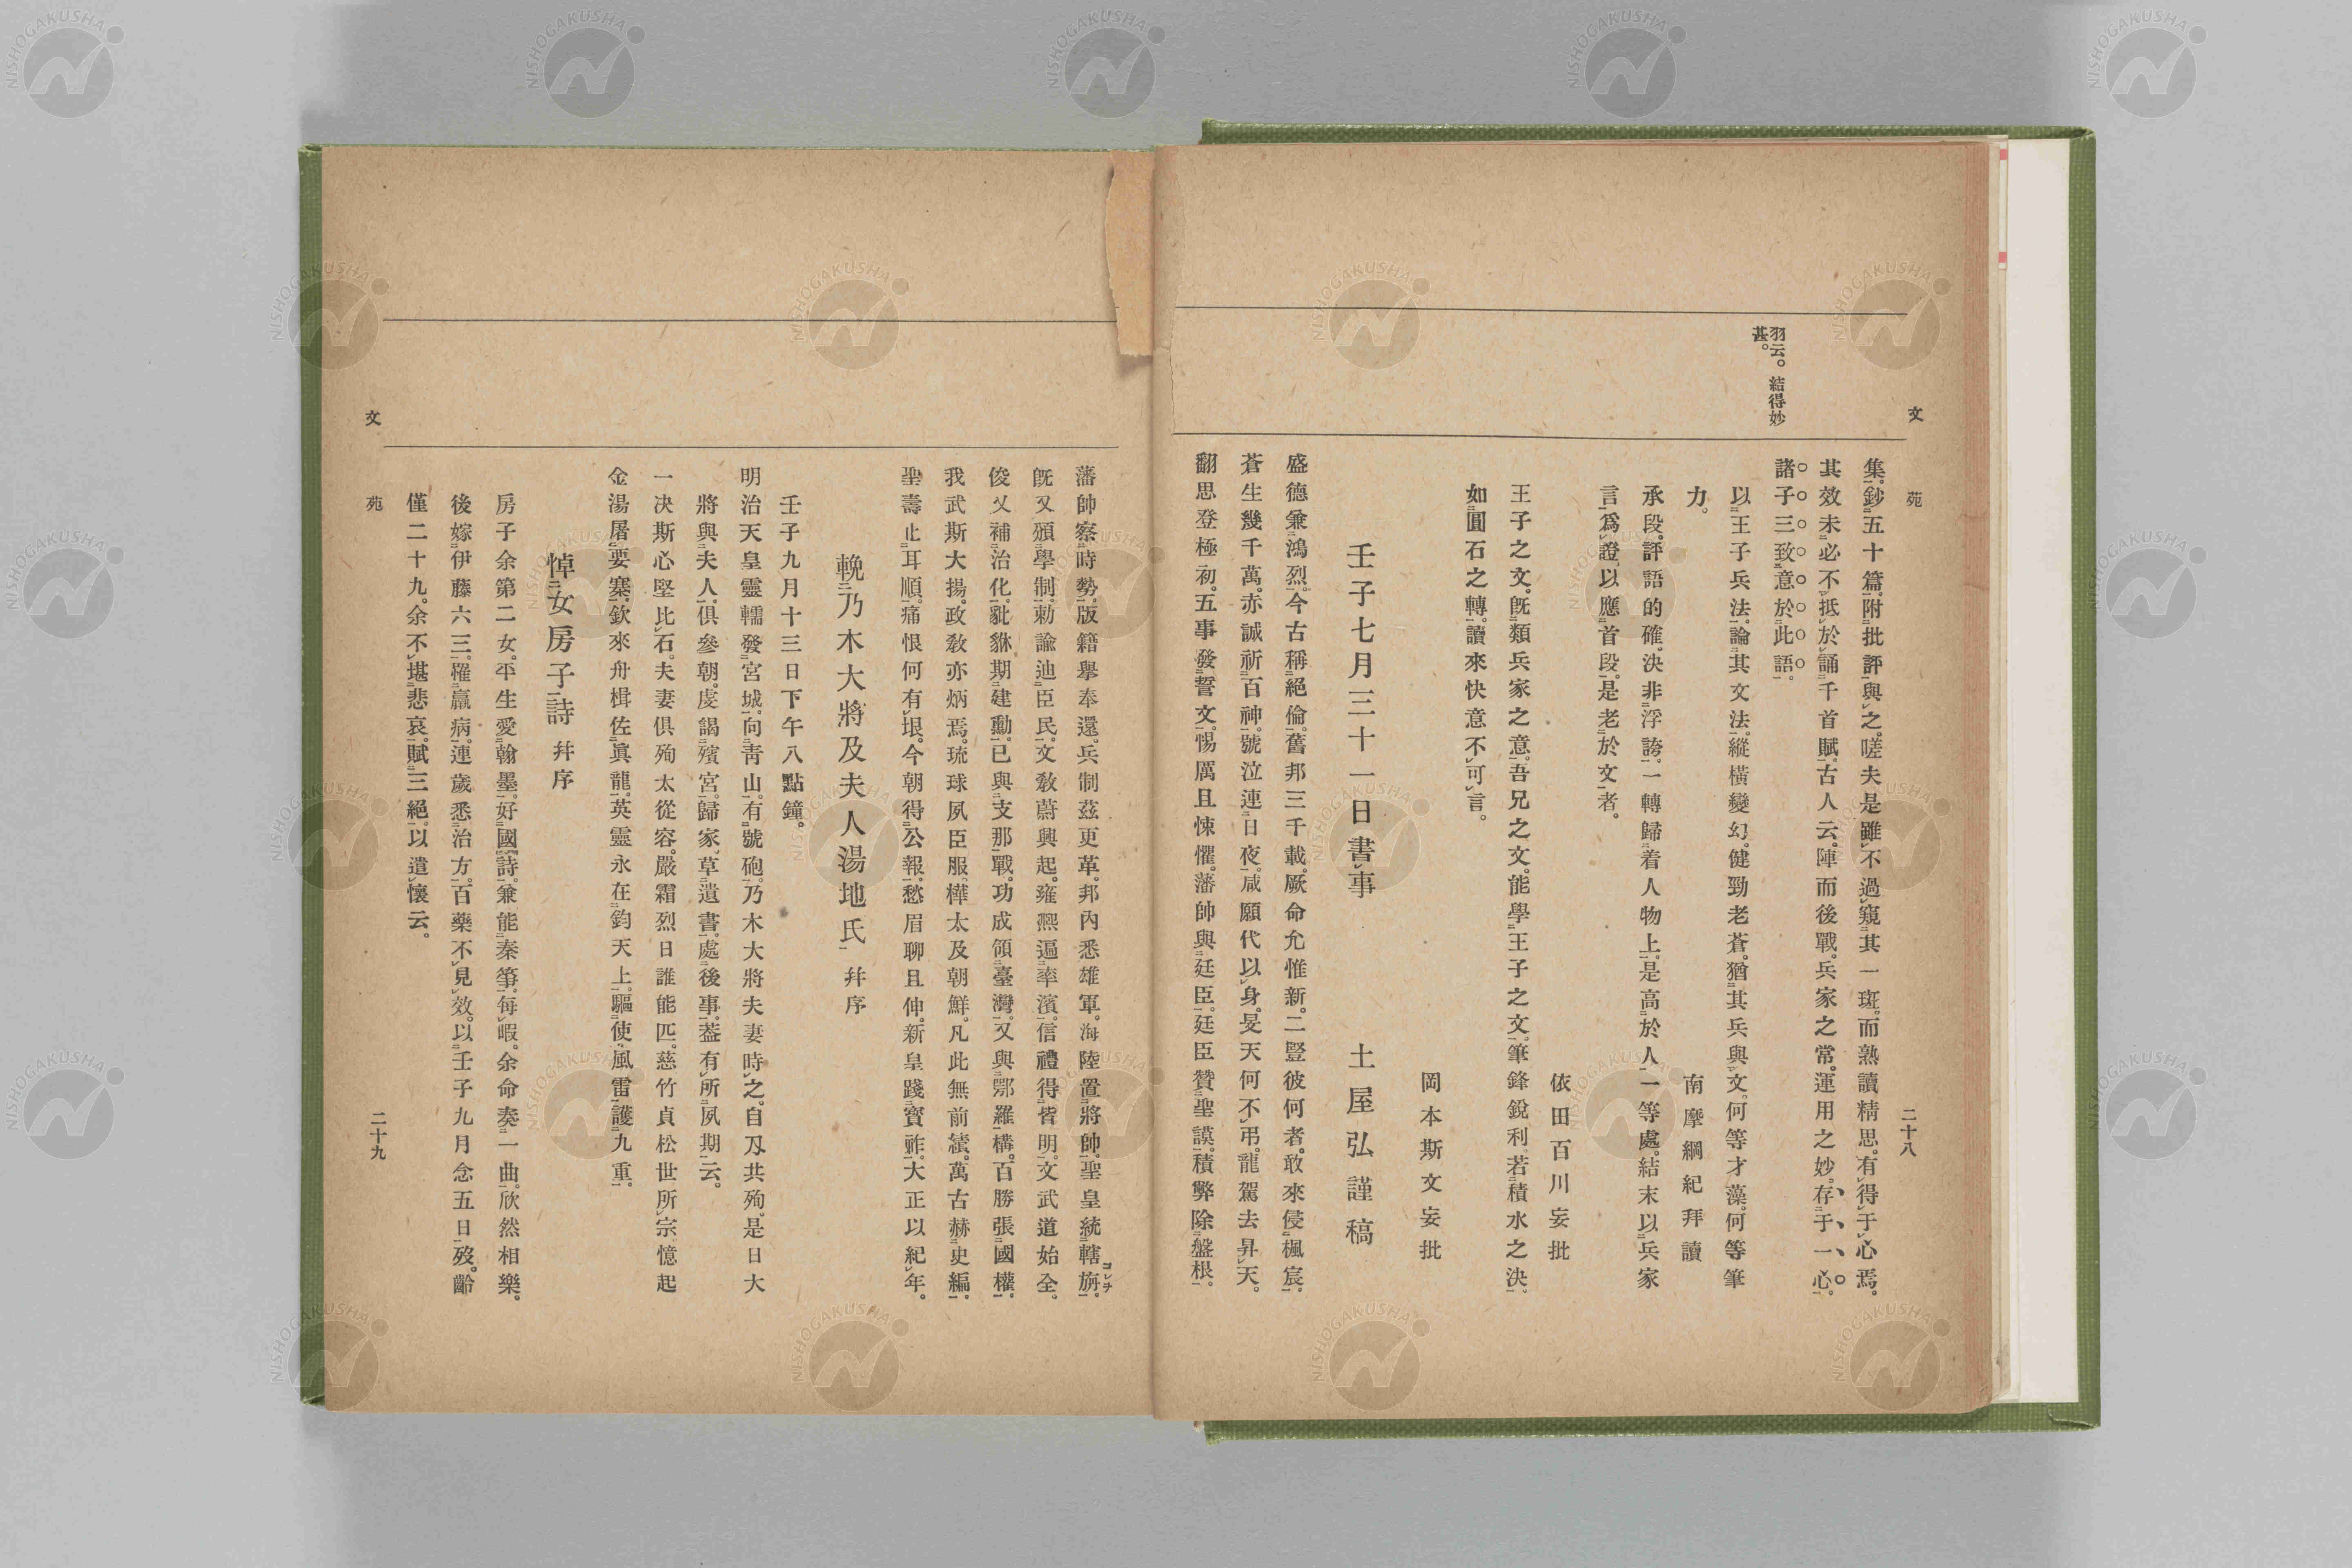 文苑
二十八
羽云。結得妙
甚。
集。鈔五十篇。附批評與之。嗟夫是雖不過窺其一斑。而熟讀精思。有得于心焉。
其效未必不抵於誦千首賦。古人云。陣而後戰。兵家之常。運用之妙。存于一心。
諸子三致意於此語。
南摩綱紀拜讀
以王子兵法。論其文法。縱橫變幻。健勁老蒼。猶其兵與文。何等才藻。何等筆
力。
承段。評語的確。決非浮誇。一轉歸着人物上。是高於人一等處。結末以兵家
言爲證。以應首段。是老於文者。
依田百川妄批
王子之文。旣類兵家之意。吾兄之文。能學王子之文。筆鋒銳利。若積水之決。
如圓石之轉。讀來快意不可言。
岡本斯文妄批
壬子七月三十一日書事
土屋弘謹稿
盛德兼鴻烈。今古稱絕倫。舊邦三千載。厥命允惟新。二豎彼何者。敢來侵楓宸。
蒼生幾千萬。亦誠祈百神。號泣連日夜。咸願代以身。旻天何不弔。龍駕去昇天。
翻思登極初。五事發誓文。惕厲且悚懼。藩帥與廷臣。廷臣贊聖謨。積弊除盤根。
藩帥察時勢。版籍擧奉還。兵制茲更革。邦內悉雄軍。海陸置將帥。聖皇統轄旃。
コレヲ
旣又頒學制。勅諭迪臣民。文敎蔚興起。雍熙遍率濱。信禮得皆明。文武道始全。
俊乂補治化。豼貅期建勳。已與支那戰。功成領臺灣。又與鄂羅構。百勝張國權。
我武斯大揚。政敎亦炳焉。琉球夙臣服。樺太及朝鮮。凡此無前績。萬古赫史編。
聖壽止耳順。痛恨何有垠。今朝得公報。愁眉聊且伸。新皇踐寶祚。大正以紀年。
輓乃木大將及夫人湯地氏 幷序
壬子九月十三日下午八點鐘。
明治天皇靈轜發宮城。向靑山。有號砲。乃木大將夫妻時之。自刃共殉。是日大
將與夫人。俱參朝。虔謁殯宮。歸家。草遺書。處後事。蓋有所夙期云。
一决斯心堅比石。夫妻俱殉太從容。嚴霜烈日誰能匹。慈竹貞松世所宗。憶起
金湯屠要寨。欽來舟楫佐眞龍。英靈永在鈞天上。驅使風雷護九重。
悼女房子詩 幷序
房子余第二女。平生愛翰墨。好國詩。兼能秦箏。每暇。余命奏一曲。欣然相樂。
後嫁伊藤六三。罹羸病。連歲悉治方。百藥不見效。以壬子九月念五日歿。齡
僅二十九。余不堪悲哀。賦三絕。以遣懷云。
文苑
二十九